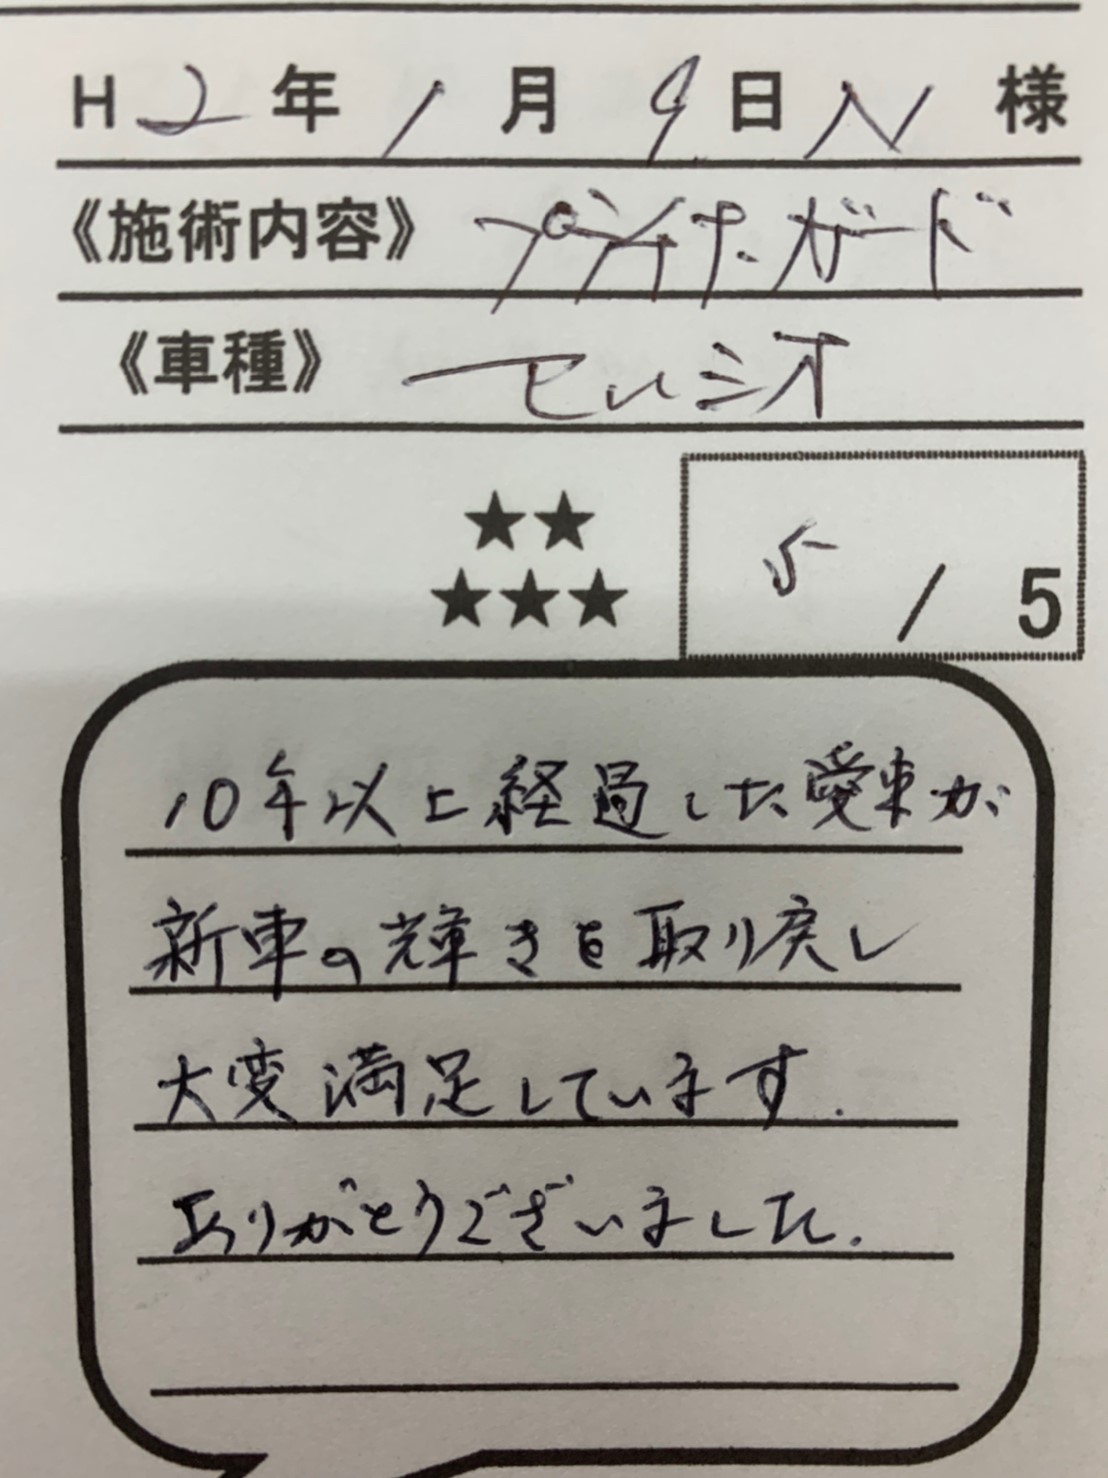 H 2 年 1 月 9 日 N 様
《施術内容》 プラチナガード
《車種》 セルシオ
★★
★★★
5 / 5
10年以上経過した愛車が
新車の輝きを取り戻し
大変満足しています.
ありがとうございました.